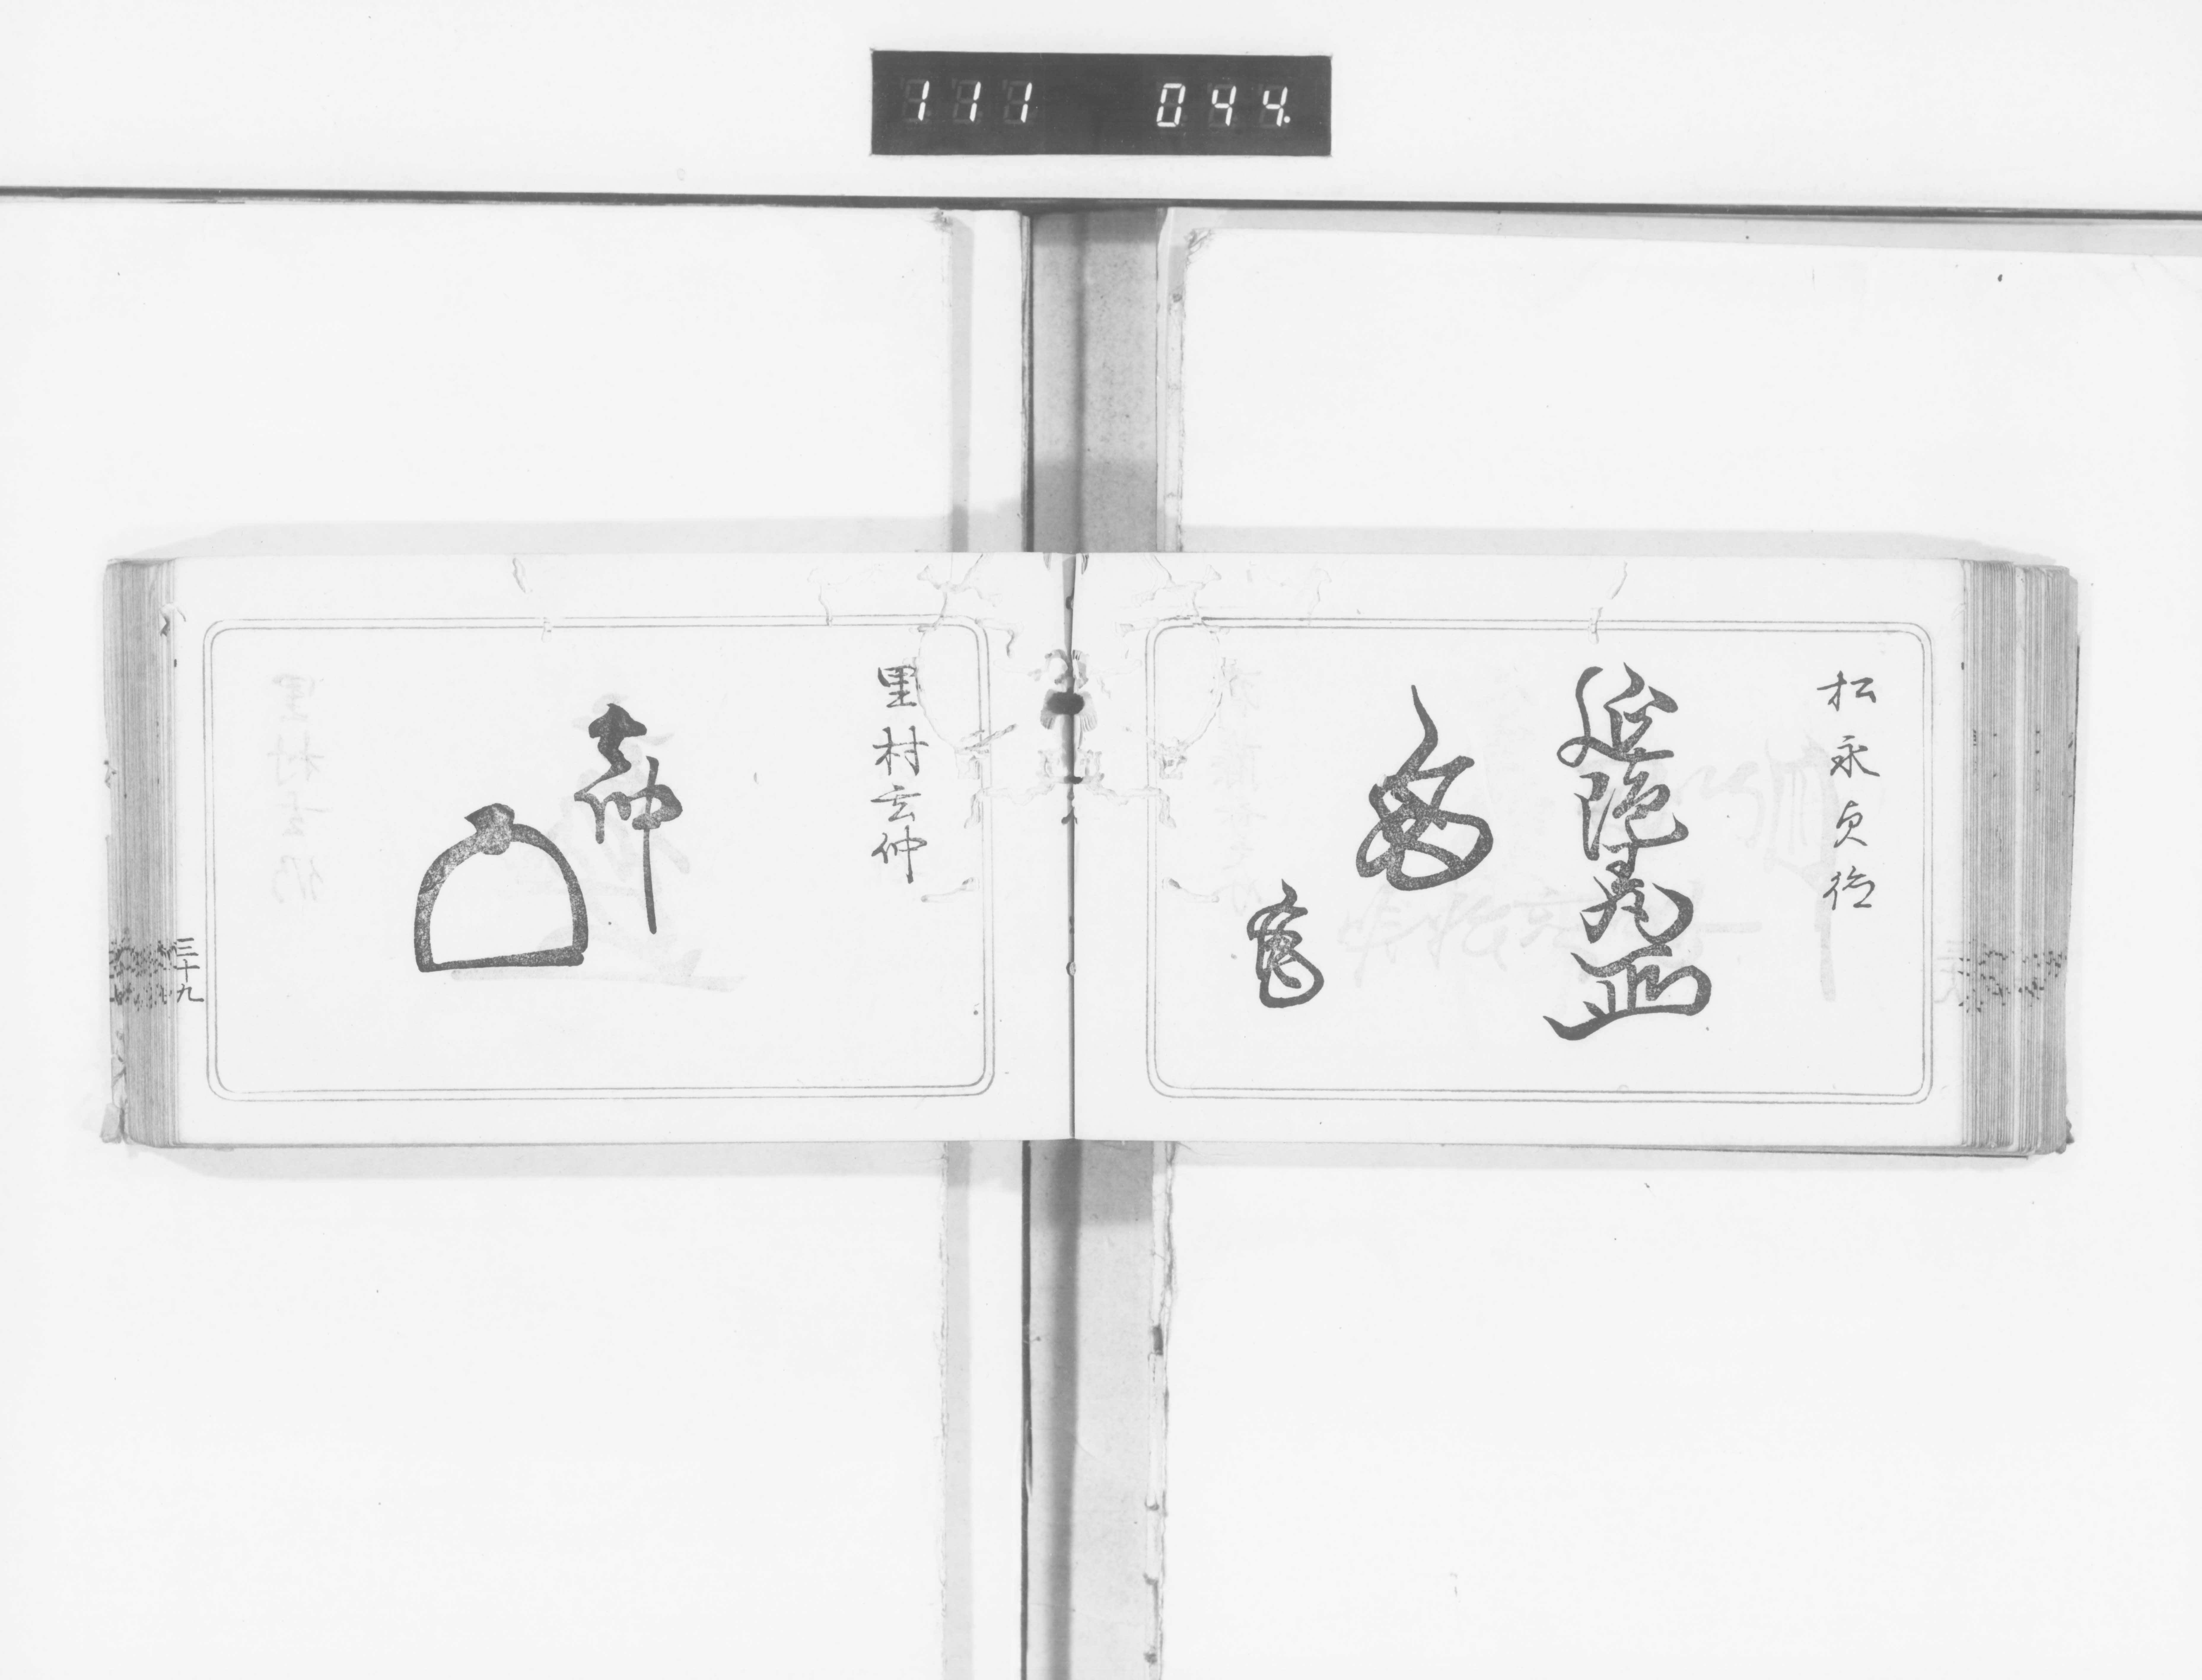 111 044.
松永貞徳
延陀丸
里村玄仲
玄仲
三十九